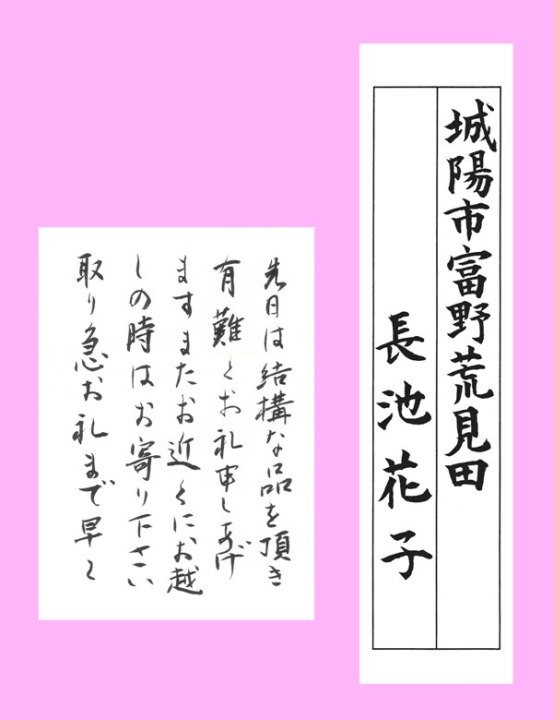 城陽市富野荒見田
長池花子
先日は結構な品を頂き
有難くお礼申しあげ
ますまたお近くにお越
しの時はお寄り下さい
取り急お礼まで早々